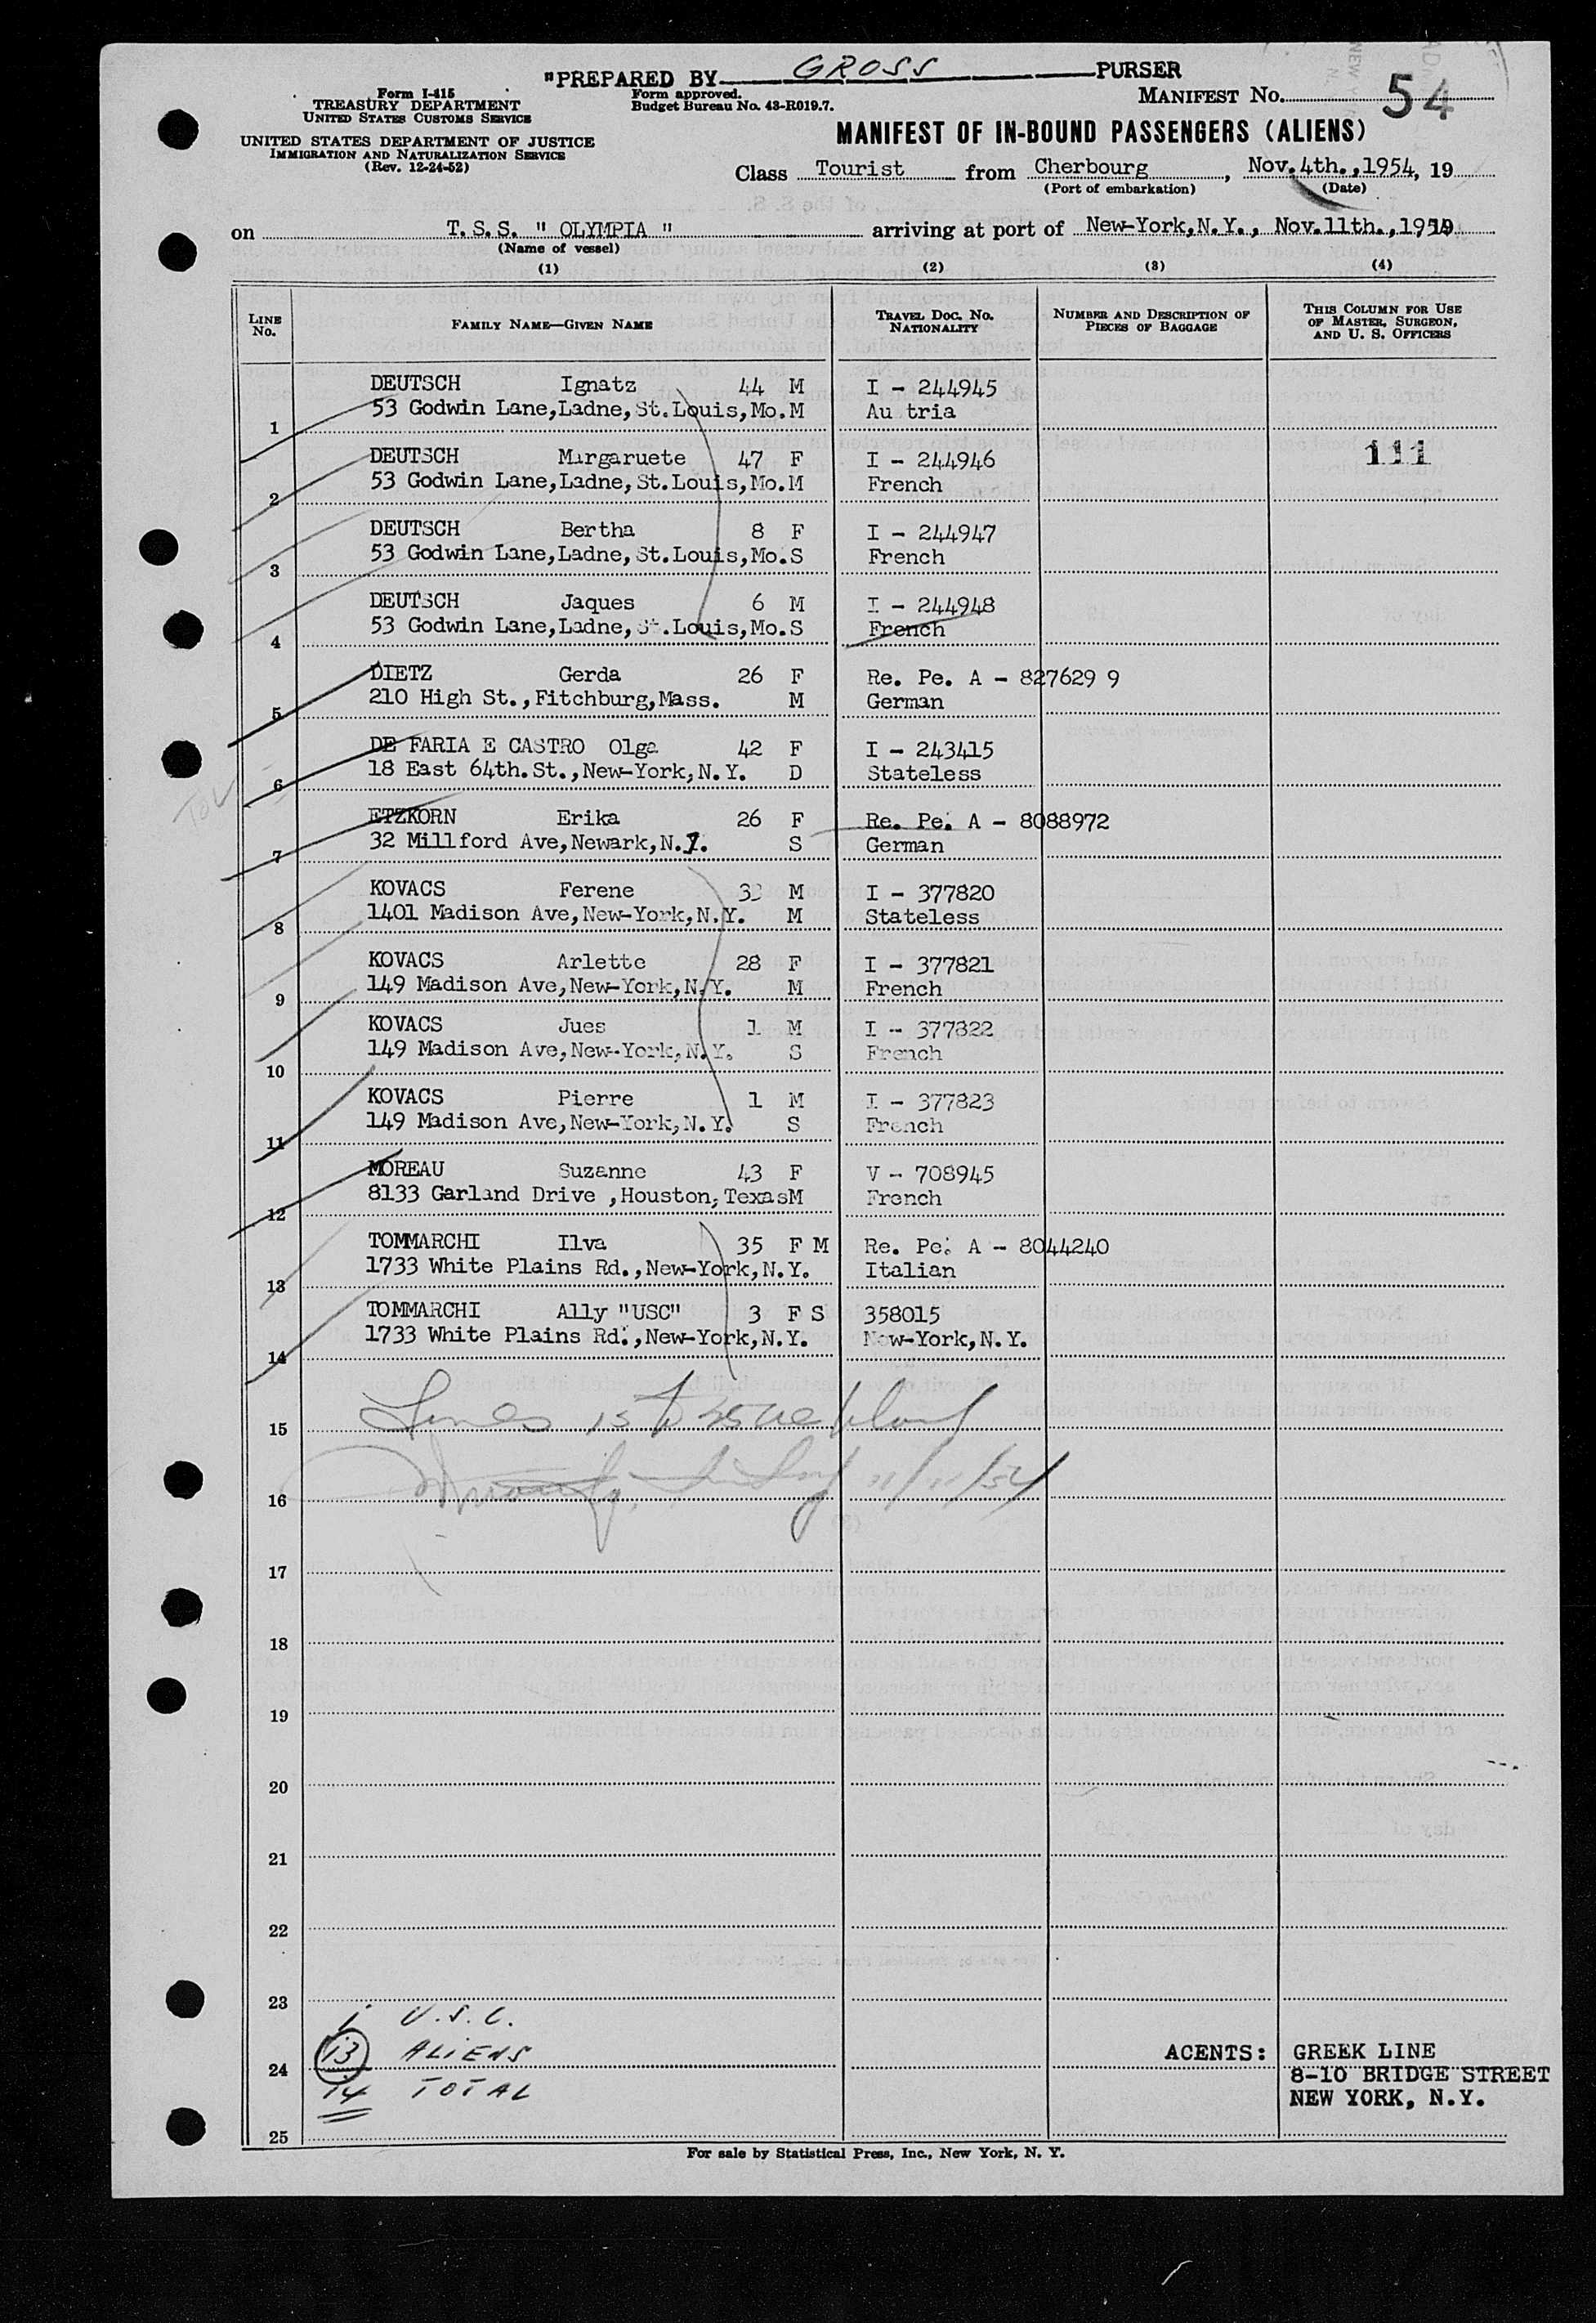 "PREPARED BY GROSS PURSER
Form I-415
TREASURY DEPARTMENT
UNITED STATES CUSTOMS SERVICE
Form approved.
Budget Bureau No. 43-R019.7.
MANIFEST No. 54
UNITED STATES DEPARTMENT OF JUSTICE
IMMIGRATION AND NATURALIZATION SERVICE
(Rev. 12-24-52)
MANIFEST OF IN-BOUND PASSENGERS (ALIENS)
Class Tourist from Cherbourg, Nov. 4th., 1954, 19
(Port of embarkation) (Date)
on T.S.S. " OLYMPIA " arriving at port of New-York, N.Y., Nov. 11th., 1954 19
(Name of vessel)
(1) (2) (3) (4)
LINE No. FAMILY NAME—GIVEN NAME TRAVEL DOC. NO. NATIONALITY NUMBER AND DESCRIPTION OF PIECES OF BAGGAGE THIS COLUMN FOR USE OF MASTER, SURGEON, AND U. S. OFFICERS
DEUTSCH Ignatz 44 M I - 244945
1 53 Godwin Lane, Ladne, St. Louis, Mo. M Au tria
DEUTSCH Margaruete 47 F I - 244946 111
2 53 Godwin Lane, Ladne, St. Louis, Mo. M French
DEUTSCH Bertha 8 F I - 244947
3 53 Godwin Lane, Ladne, St. Louis, Mo. S French
DEUTSCH Jaques 6 M I - 244948
4 53 Godwin Lane, Ladne, St. Louis, Mo. S French
DIETZ Gerda 26 F Re. Pe. A - 827629 9
5 210 High St., Fitchburg, Mass. M German
DE FARIA E CASTRO Olga 42 F I - 243415
6 18 East 64th. St., New-York, N.Y. D Stateless
ETZKORN Erika 26 F Re. Pe. A - 8088972
7 32 Millford Ave, Newark, N.J. S German
KOVACS Ferene 33 M I - 377820
8 1401 Madison Ave, New-York, N.Y. M Stateless
KOVACS Arlette 28 F I - 377821
9 149 Madison Ave, New-York, N.Y. M French
KOVACS Jues 1 M I - 377822
10 149 Madison Ave, New-York, N.Y. S French
KOVACS Pierre 1 M I - 377823
11 149 Madison Ave, New-York, N.Y. S French
MOREAU Suzanne 43 F V - 708945
12 8133 Garland Drive , Houston, Texas M French
TOMMARCHI Ilva 35 F M Re. Pe. A - 8044240
13 1733 White Plains Rd., New-York, N.Y. Italian
TOMMARCHI Ally "USC" 3 F S 358015
14 1733 White Plains Rd., New-York, N.Y. New-York, N.Y.
15 Lines 15 to 25 are blank
16 11/11/54
17
18
19
20
21
22
23
1 U.S.C.
24 13 ALIENS
14 TOTAL
25
AGENTS: GREEK LINE
8-10 BRIDGE STREET
NEW YORK, N.Y.
For sale by Statistical Press, Inc., New York, N. Y.